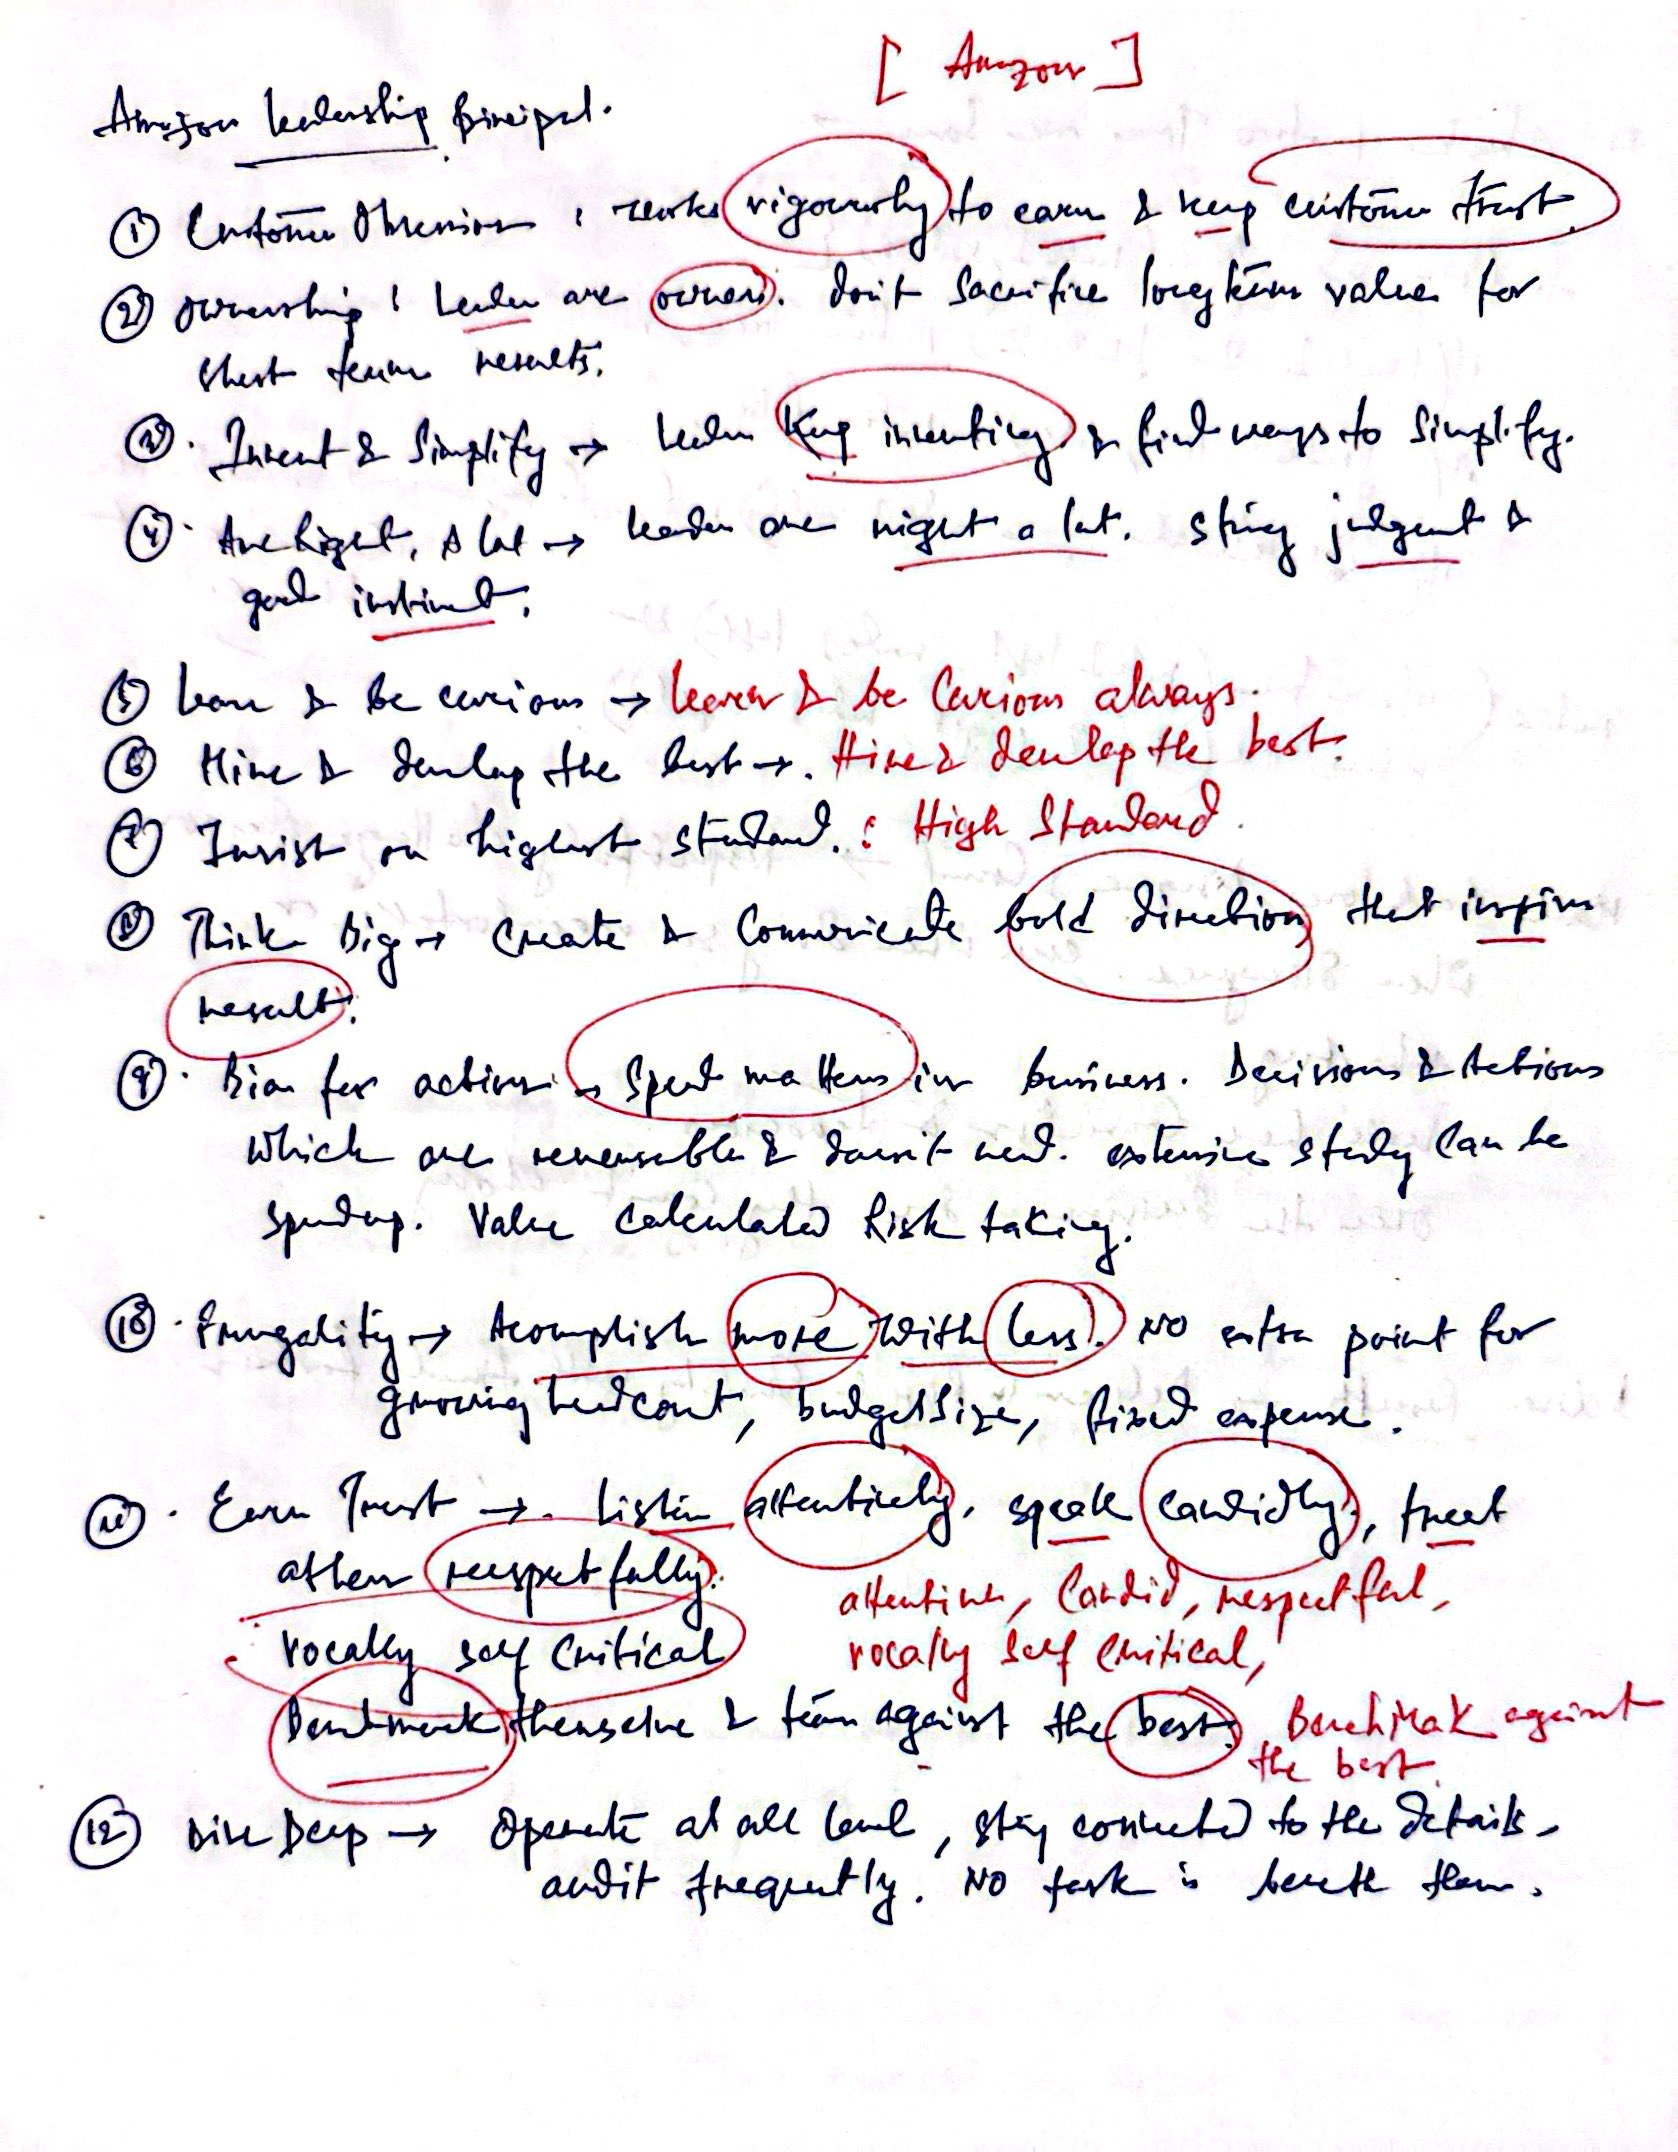 [ Amazon ]
Amazon leadership principal.
① Customer Obsession : works vigorously to earn & keep customer trust.
② Ownership : Leader are owners. don't Sacrifice longterm value for
short term results.
③. Invent & Simplify → leader Keep inventing & find ways to Simplify.
④. Are Right, A lot → leader are right a lot. strong judgment &
good instinct.
⑤ learn & be curious → learn & be Curious always.
⑥ Hire & develop the best →. Hire & develop the best.
⑦ Insist on highest standard. : High Standard.
⑧ Think Big → Create & Communicate bold direction that inspire
result.
⑨. Bias for action → Speed matters in business. Decisions & Actions
which are reversable & doesn't need. extensive study can be
speedup. Value calculated Risk taking.
⑩. Frugality → Acomplish more with less. No extra point for
growing headcount, budget size, fixed expense.
⑪. Earn Trust →. Listen attentively, speak candidly, treat
others respectfully.
attentive, Candid, respectful,
vocally self critical
vocally self critical,
Benchmark themselve & team against the best. BenchMak against
the best.
⑫ Dive Deep → Operate at all level, stay connected to the details,
audit frequently. No task is beneth them.